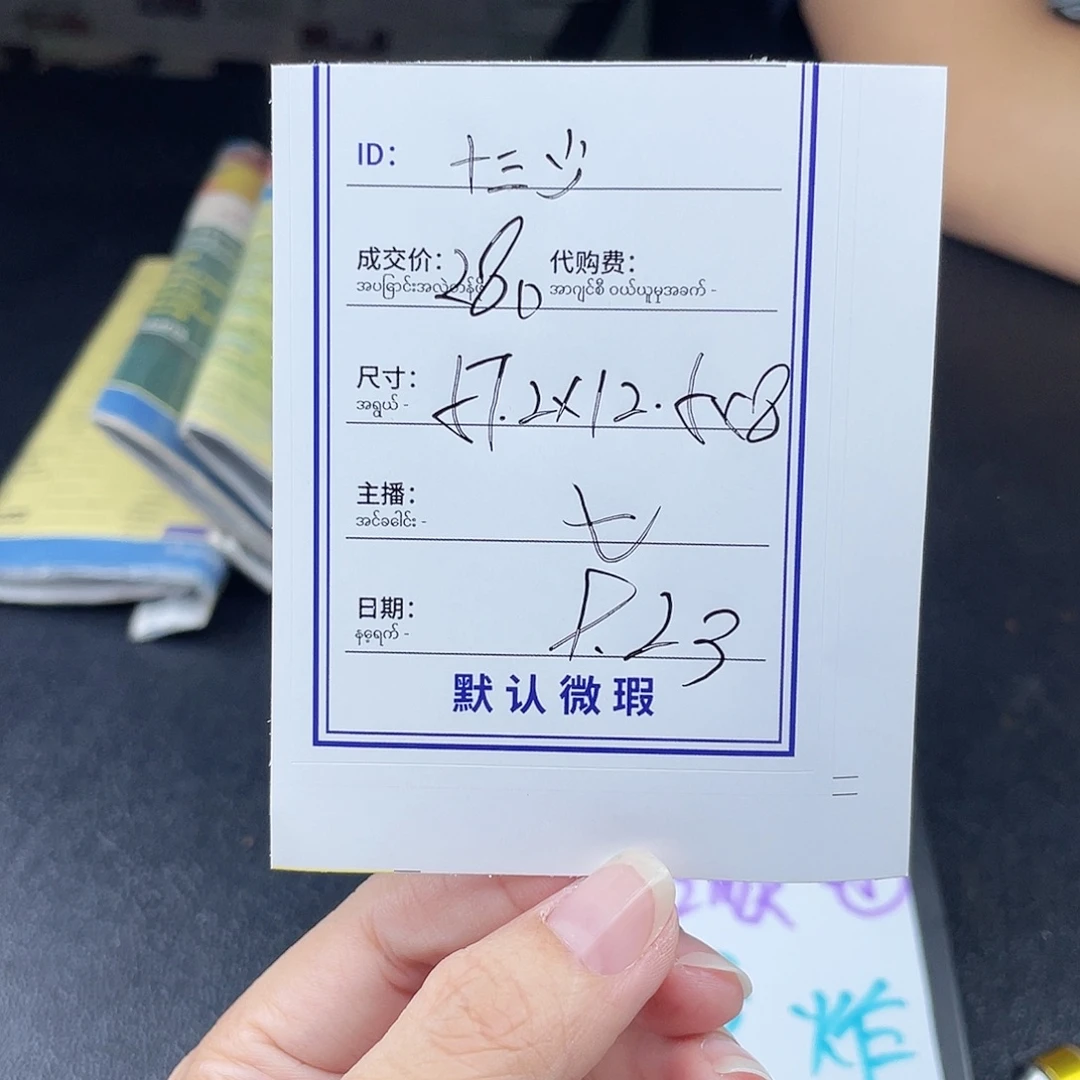 ID： 十三少
成交价： 280 代购费：
အပြောင်းအလဲတန်ဖိုး အာဂျင်စီ ဝယ်ယူမှုအခက် -
尺寸： 57.2×12.5×8
အရွယ် -
主播： 七
အင်ခေါင်း -
日期： 8.23
နေ့ရက် -
默认微瑕
炸